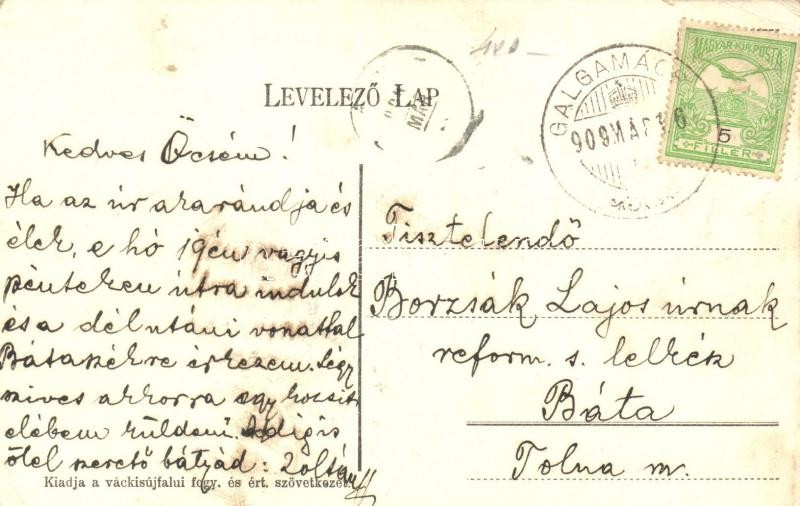 LEVELEZŐ LAP
GALGAMÁCSA
909 MÁR 16
MAGYAR KIR. POSTA
5
FILLÉR
Kedves Öcsém!
Ha az úr akarándja és
élek, e hó 19én vagyis
pénteken útra indulok
és a délutáni vonattal
Bátaszékre érkezem. Légy
szives akkorra egy kocsit
elébem küldeni. Addig is
ölel szerető bátyád: Zoltán
Tisztelendő
Borzsák Lajos úrnak
reform. s. lelkész
Báta
Tolna m.
Kiadja a váckisújfalui fogy. és ért. szövetkezet.